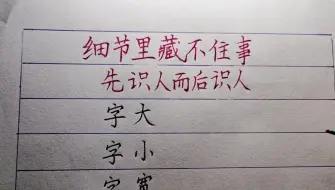 细节里藏不住事
先识人而后识人
字大
字小
字宽